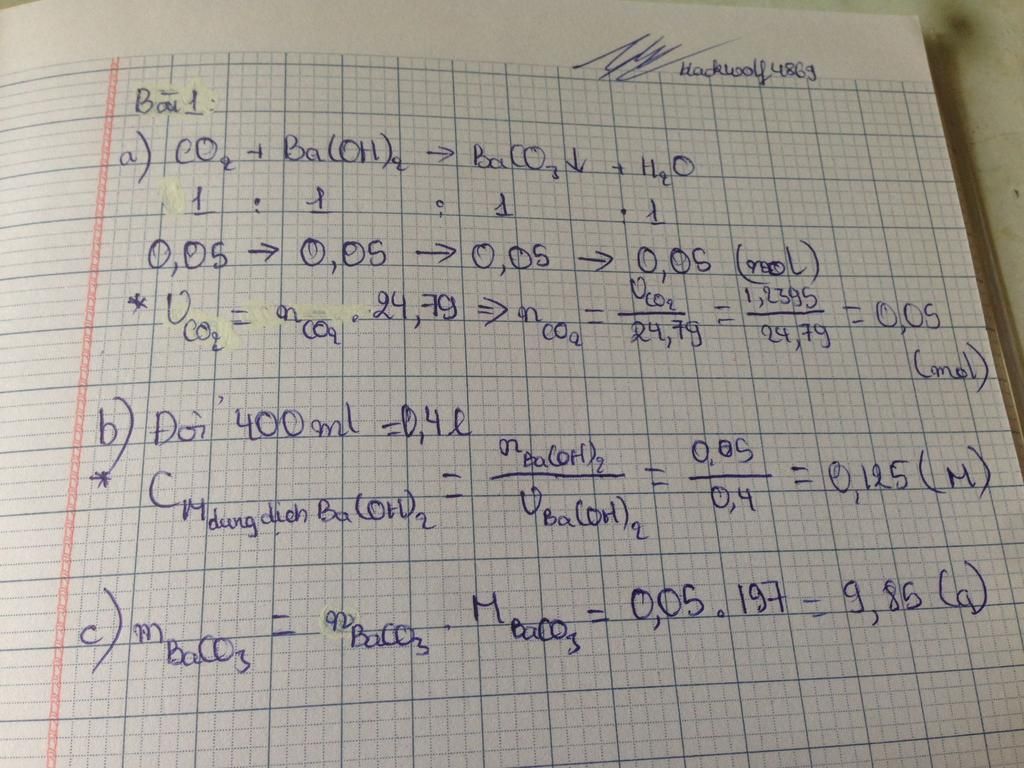 Hackwolf4869
Bài 1:
a) CO₂ + Ba(OH)₂ → BaCO₃↓ + H₂O
1 : 1 : 1 . 1
0,05 → 0,05 → 0,05 → 0,05 (mol)
* V_CO₂ = n_CO₂ . 24,79 ⇒ n_CO₂ = V_CO₂/24,79 = 1,2395/24,79 = 0,05
(mol)
b) Đổi 400ml = 0,4l
* C_M dung dịch Ba(OH)₂ = n_Ba(OH)₂/V_Ba(OH)₂ = 0,05/0,4 = 0,125 (M)
c) m_BaCO₃ = n_BaCO₃ . M_BaCO₃ = 0,05 . 197 = 9,85 (g)